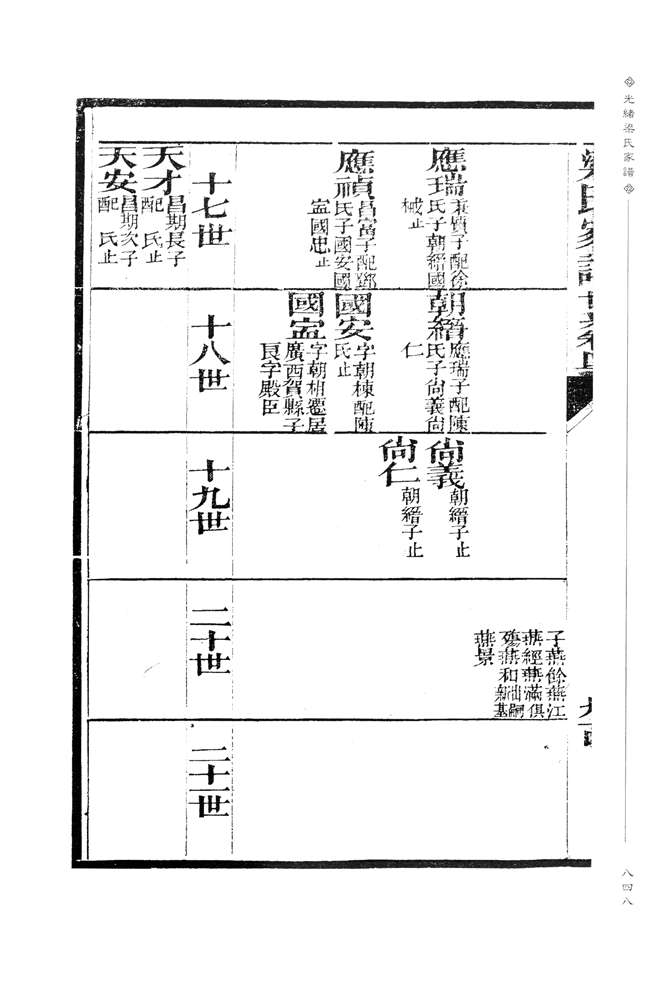 光緒梁氏家譜
八四八
應瑞
秉質子配徐
氏子朝縉國
棫止
應禎
昌富子配鄧
氏子國安國
寍國忠止
十七世
天才
昌期長子
配 氏止
天安
昌期次子
配 氏止
朝縉
應瑞子配陳
氏子尚義尚
仁
國安
字朝棟配陳
氏止
國寍
字朝相遷居
廣西賀縣子
良字殿臣
十八世
尚義
朝縉子止
尚仁
朝縉子止
十九世
子燕餘燕江
燕經燕滿俱
殤燕和出嗣新基
燕景
二十世
二十一世